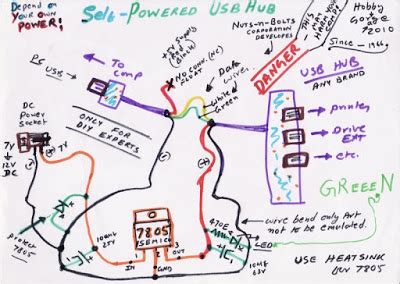 Depend on
Your own
POWER!
Self-Powered USB HUB
Nuts-n-Bolts
CORPORATION
DEVELOPES
DANGER
THIS MAY
HARM YOUR
COMP
Hobby
@2010
Since - 1966
PC USB
To
Comp
+5V SUPPLY
Red
NO CONN. (NC)
FLOAT
Data
wires
white
Green
USB HUB
ANY BRAND
Printer
Drive
EXT
etc.
DC
Power
socket
7V
12V
DC
ONLY FOR
DIY EXPERTS
GREEEN
Protect
7805
100mF
25V
7805
ISEMIC
1
2
3
IN
OUT
GND
470E
LED
10mF
63V
wire bend only Art
not to be emulated.
USE HEATSINK
for 7805